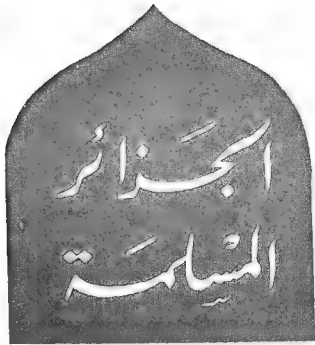 الجَزَائر
المسْلِمَة